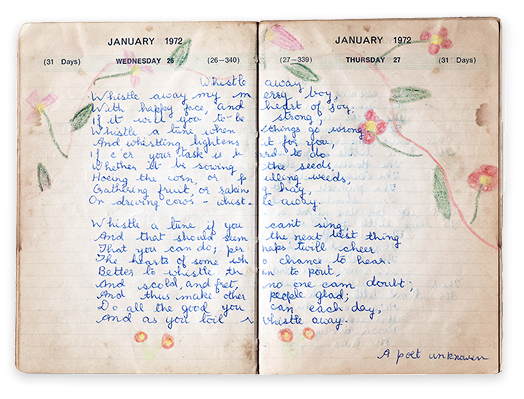 JANUARY 1972
(31 Days) WEDNESDAY 26 (26–340)
JANUARY 1972
(27–339) THURSDAY 27 (31 Days)
Whistle away
Whistle away my merry boy,
With happy face, and heart of joy;
If it will you to-be strong,
Whistle a tune when things go wrong
And whistling lightens it for you,
If e'er your task is hard to do
Whether it be sowing the seeds,
Hoeing the corn, or pulling weeds,
Gathering fruit, or rakin g hay,
Or driving cows - whistle away.
Whistle a tune if you can't sing,
And that should seem the next best thing
That you can do; perhaps twill cheer
The hearts of some who chance to hear.
Better to whistle than to pout,
And scold and fret, no one cam doubt;
And thus make other people glad;
Do all the good you can each day;
And as you toil whistle away.
A poet unknown